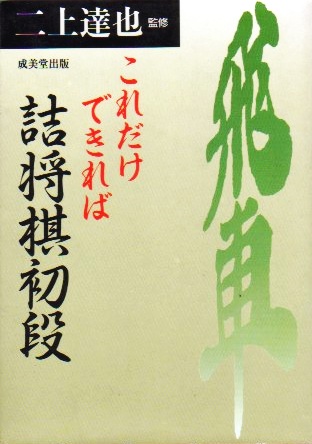 二上達也 監修
成美堂出版
これだけ
できれば
詰将棋初段
飛車